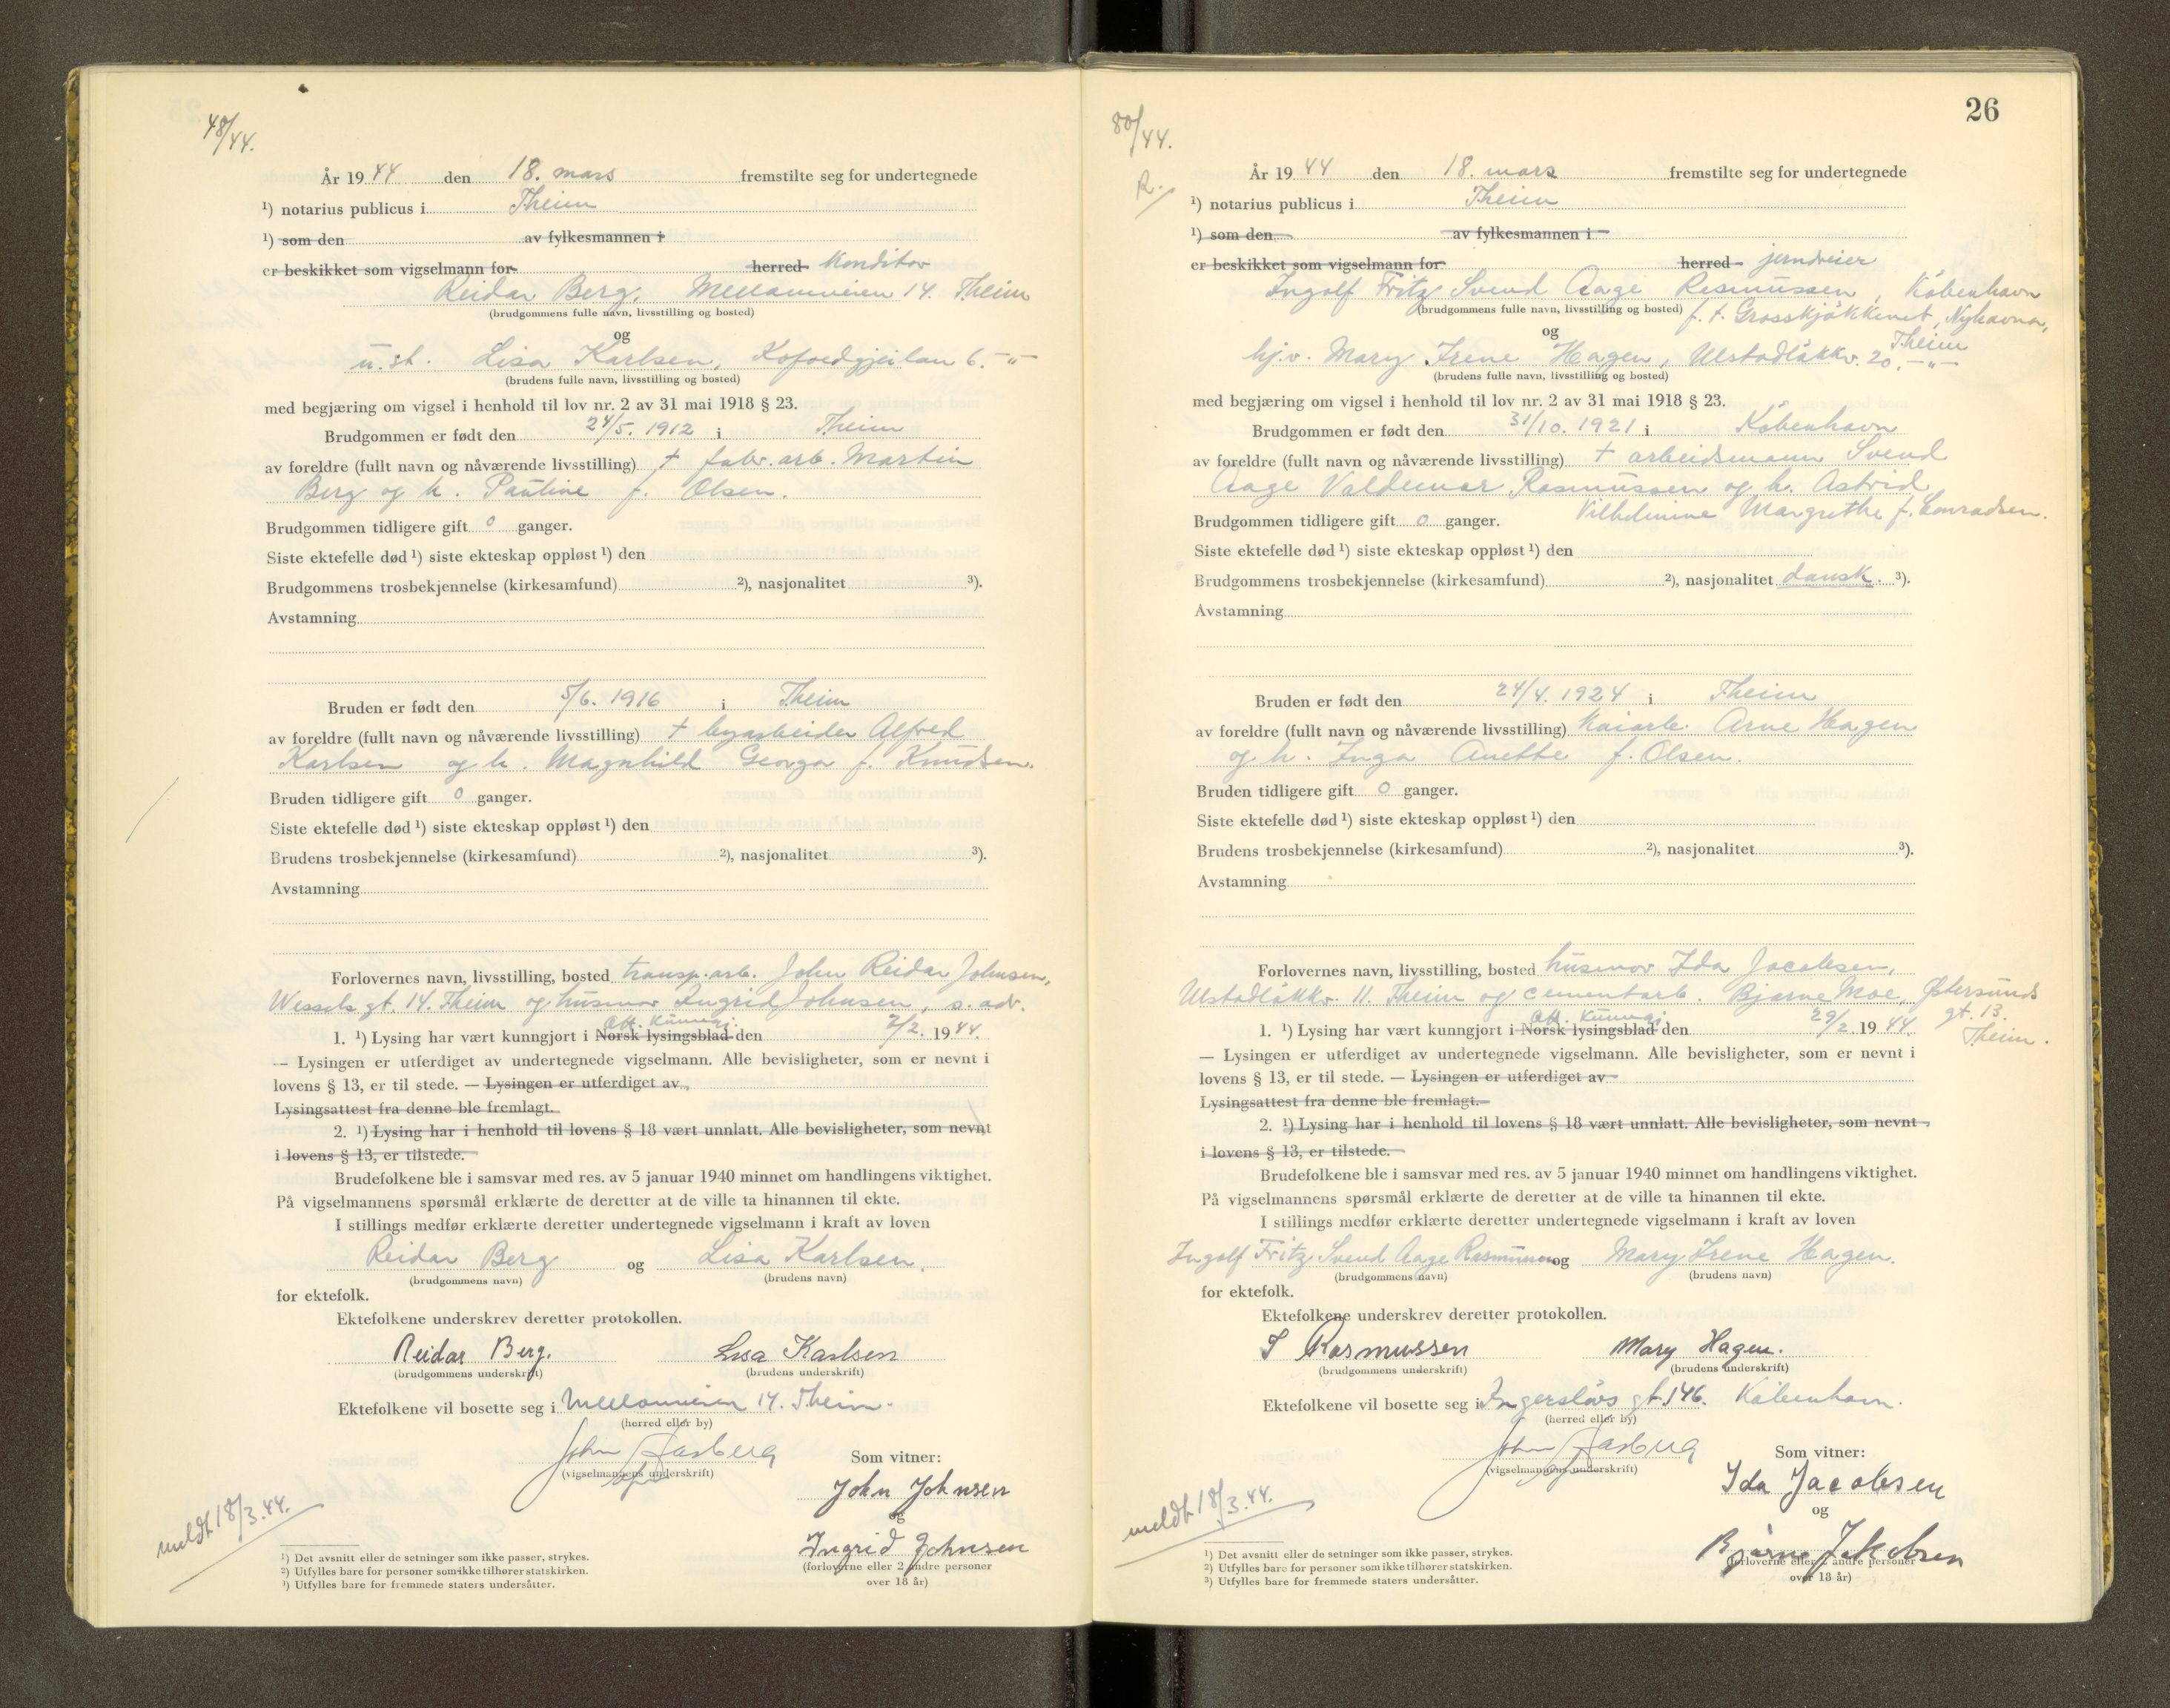 48/44.
År 1944 den 18. mars fremstilte seg for undertegnede
¹) notarius publicus i Theim
¹) som den av fylkesmannen i
er beskikket som vigselmann for herred konditor
Reidar Berg, Mellomveien 14. Theim
(brudgommens fulle navn, livsstilling og bosted)
og
u.st. Lisa Karlsen, Kofoedgjeilan 6. -"-
(brudens fulle navn, livsstilling og bosted)
med begjæring om vigsel i henhold til lov nr. 2 av 31 mai 1918 § 23.
Brudgommen er født den 24/5. 1912 i Theim
av foreldre (fullt navn og nåværende livsstilling) † fabr. arb. Martin
Berg og h. Pauline f. Olsen.
Brudgommen tidligere gift 0 ganger.
Siste ektefelle død ¹) siste ekteskap oppløst ¹) den
Brudgommens trosbekjennelse (kirkesamfund) ²), nasjonalitet ³).
Avstamning
Bruden er født den 5/6. 1916 i Theim
av foreldre (fullt navn og nåværende livsstilling) † byarbeider Alfred
Karlsen og h. Magnhild Georga f. Knudsen.
Bruden tidligere gift 0 ganger.
Siste ektefelle død ¹) siste ekteskap oppløst ¹) den
Brudens trosbekjennelse (kirkesamfund) ²), nasjonalitet ³).
Avstamning
Forlovernes navn, livsstilling, bosted transp. arb. John Reidar Johnsen,
Wessels gt. 14. Theim og husmor Ingrid Johnsen, s. adr.
Off. Kunngj.
1. ¹) Lysing har vært kunngjort i Norsk lysingsblad den 2/2. 1944.
— Lysingen er utferdiget av undertegnede vigselmann. Alle bevisligheter, som er nevnt i
lovens § 13, er til stede. — Lysingen er utferdiget av
Lysingsattest fra denne ble fremlagt.
2. ¹) Lysing har i henhold til lovens § 18 vært unnlatt. Alle bevisligheter, som nevnt
i lovens § 13, er tilstede.
Brudefolkene ble i samsvar med res. av 5 januar 1940 minnet om handlingens viktighet.
På vigselmannens spørsmål erklærte de deretter at de ville ta hinannen til ekte.
I stillings medfør erklærte deretter undertegnede vigselmann i kraft av loven
Reidar Berg og Lisa Karlsen.
(brudgommens navn) (brudens navn)
for ektefolk.
Ektefolkene underskrev deretter protokollen.
Reidar Berg. Lisa Karlsen
(brudgommens underskrift) (brudens underskrift)
Ektefolkene vil bosette seg i Mellomveien 14. Theim.
(herred eller by)
John Aasberg
(vigselmannens underskrift)
Som vitner:
John Johnsen
og
Ingrid Johnsen
(forloverne eller 2 andre personer
over 18 år)
meldt 18/3.44.
¹) Det avsnitt eller de setninger som ikke passer, strykes.
²) Utfylles bare for personer som ikke tilhører statskirken.
³) Utfylles bare for fremmede staters undersåtter.
26
80/44.
R.
År 1944 den 18. mars fremstilte seg for undertegnede
¹) notarius publicus i Theim
¹) som den av fylkesmannen i
er beskikket som vigselmann for herred jerndreier
Ingolf Fritz Svend Aage Rasmussen, København
(brudgommens fulle navn, livsstilling og bosted) f. t. Grosskjøkkenet, Nyhavna,
og Theim
hj.v. Mary Irene Hagen, Ulstadløkkv. 20. -"-
(brudens fulle navn, livsstilling og bosted)
med begjæring om vigsel i henhold til lov nr. 2 av 31 mai 1918 § 23.
Brudgommen er født den 31/10. 1921 i København
av foreldre (fullt navn og nåværende livsstilling) † arbeidsmann Svend
Aage Valdemar Rasmussen og h. Astrid
Vilhelmine Margrethe f. Conradsen.
Brudgommen tidligere gift 0 ganger.
Siste ektefelle død ¹) siste ekteskap oppløst ¹) den
Brudgommens trosbekjennelse (kirkesamfund) ²), nasjonalitet dansk. ³).
Avstamning
Bruden er født den 24/4. 1924 i Theim
av foreldre (fullt navn og nåværende livsstilling) Kaiarb. Arne Hagen
og h. Inga Anette f. Olsen.
Bruden tidligere gift 0 ganger.
Siste ektefelle død ¹) siste ekteskap oppløst ¹) den
Brudens trosbekjennelse (kirkesamfund) ²), nasjonalitet ³).
Avstamning
Forlovernes navn, livsstilling, bosted husmor Ida Jacobsen,
Ulstadløkkv. 11. Theim og cementarb. Bjarne Moe, Østersunds
gt. 13.
Theim.
Off. Kunngj.
1. ¹) Lysing har vært kunngjort i Norsk lysingsblad den 29/2. 1944.
— Lysingen er utferdiget av undertegnede vigselmann. Alle bevisligheter, som er nevnt i
lovens § 13, er til stede. — Lysingen er utferdiget av
Lysingsattest fra denne ble fremlagt.
2. ¹) Lysing har i henhold til lovens § 18 vært unnlatt. Alle bevisligheter, som nevnt
i lovens § 13, er tilstede.
Brudefolkene ble i samsvar med res. av 5 januar 1940 minnet om handlingens viktighet.
På vigselmannens spørsmål erklærte de deretter at de ville ta hinannen til ekte.
I stillings medfør erklærte deretter undertegnede vigselmann i kraft av loven
Ingolf Fritz Svend Aage Rasmussen og Mary Irene Hagen.
(brudgommens navn) (brudens navn)
for ektefolk.
Ektefolkene underskrev deretter protokollen.
I Rasmussen Mary Hagen.
(brudgommens underskrift) (brudens underskrift)
Ektefolkene vil bosette seg i Ingerslävs gt. 146. København.
(herred eller by)
John Aasberg
(vigselmannens underskrift)
Som vitner:
Ida Jacobsen
og
Bjarne Jakobsen
(forloverne eller 2 andre personer
over 18 år)
meldt 18/3.44.
¹) Det avsnitt eller de setninger som ikke passer, strykes.
²) Utfylles bare for personer som ikke tilhører statskirken.
³) Utfylles bare for fremmede staters undersåtter.